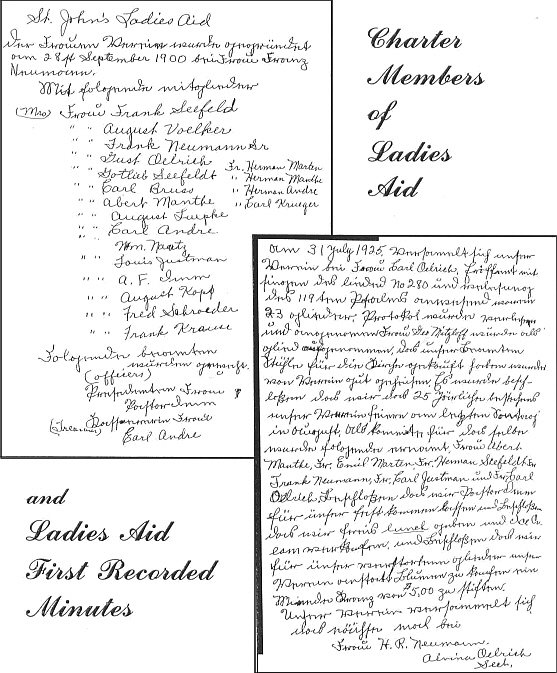 St. John's Ladies Aid
Der Frauen Verein wurde gegründet
am 28st September 1900 bei Frau Franz
Neumann.
Mit folgende mitglieder
(Mrs) Frau Frank Seefeld
" " August Voelker
" " Frank Neumann Sr
" " Gust Oelrich
" " Gotlieb Seefeldt
" " Carl Bruss
" " Abert Manthe
" " August
" " Carl Andre
Wm.
" " Louis Justman
" " A.F.
" " August Kopf
" " Fred Schroeder
" " Frank Krause
Fr. Herman Marten
" Herman Manthe
" Herman Andre
" Carl Krueger
Folgende beamten
wurden
(officers)
Presedentin Frau
Pastor
(Treasurer)
Frau
Carl Andre
Charter
Members
of
Ladies
Aid
am 31 July 1925 versammelt sich unser
Verein bei Frau Carl Oelrich, mit
singen des liedes No 280 und verlesung
des 119ten Psalms anwesend waren
23 glieder. Protokol wurde verlesen
und angenommen Frau Geo Mitzloff wurde als
glied aufgenommen, das unser beamten
Stühle für die Kirche gekauft haben wurde
von Verein gut geheisen. Es wurde besch-
loßen das wir das 25 Järliche bestehens
unser Verein feiern am letzten Sontag
in August. Als komite für das selbe
wurde folgende ernannt, Frau Abert
Manthe, Fr. Emil Marten, Fr. Herman Seefeldt Fr
Frank Neumann, Fr. Carl Justman und Fr. Carl
Oelrich, Beschloßen das wir Pastor
für unser fest kommen lassen und Beschloßen
das wir freies lunch geben und Ice Cre
eam verkaufen, und Beschloßen das wir
für unser verstorbene glieder unser
Verein anstatt Blumen zu kaufen ein
Kranz von $5,00 zu stiften.
Unser Verein versammelt sich
das nächste mal bei
Frau H. R. Neumann.
Alvina Oelrich
Sect.
and
Ladies Aid
First Recorded
Minutes